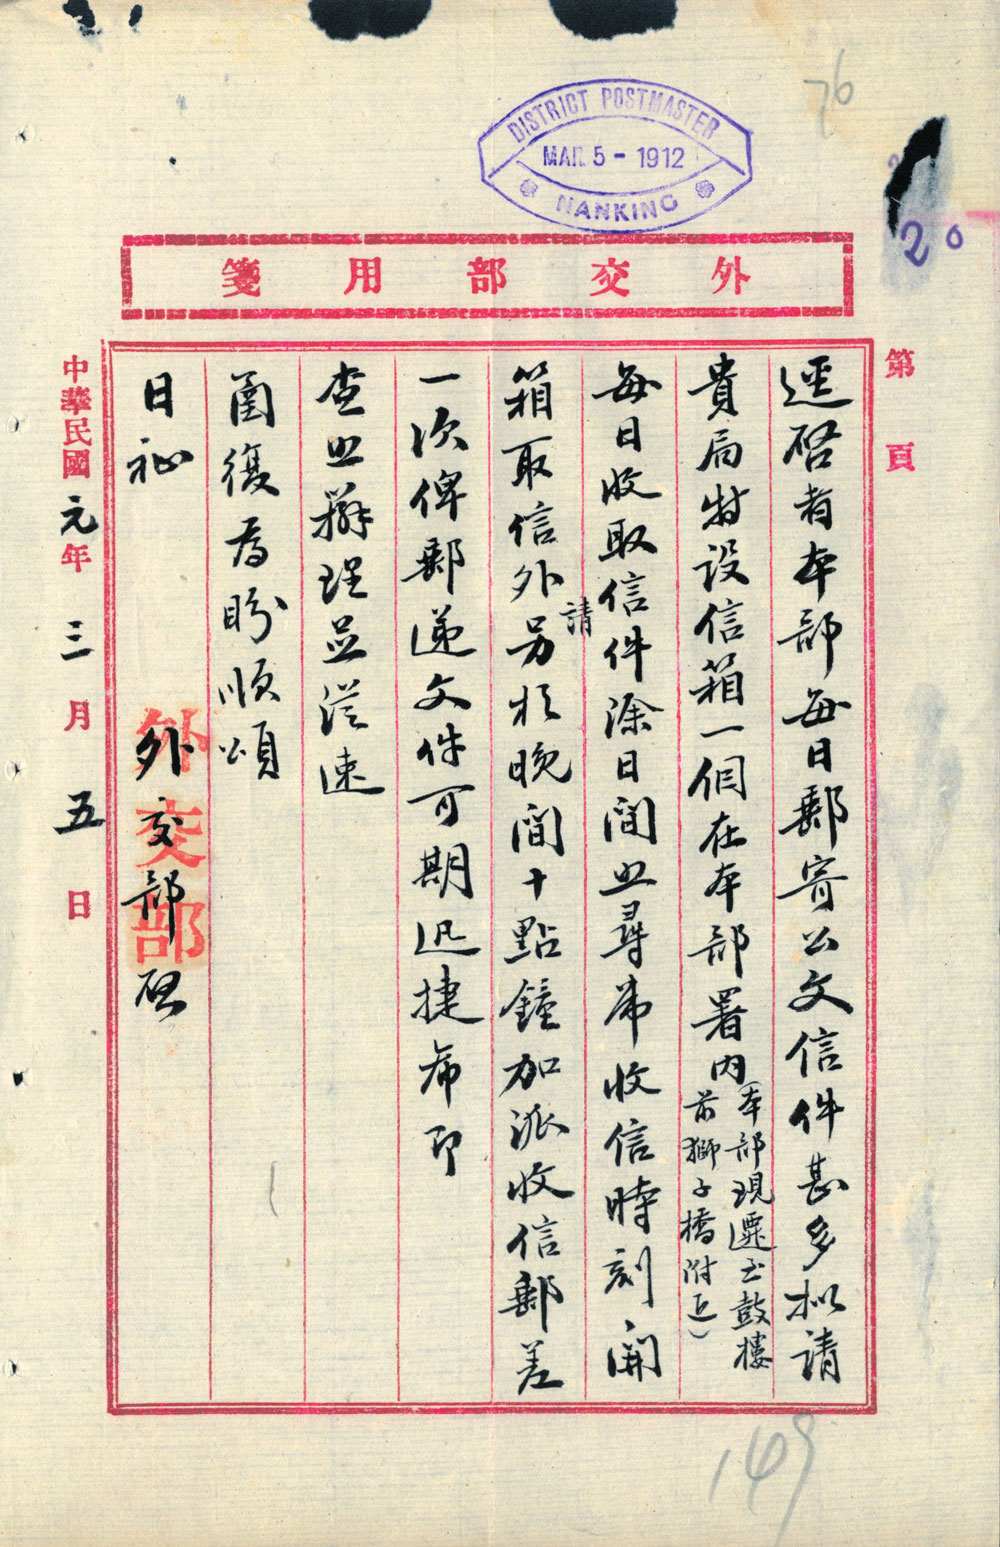 76
DISTRICT POSTMASTER
MAR. 5 - 1912
NANKING
20
外交部用箋
第 頁
逕啓者本部每日郵寄公文信件甚多擬請
貴局特設信箱一個在本部署內（本部現遷至鼓樓前獅子橋附近）
每日收取信件除日間照尋常收信時刻開
箱取信外請另於晚間十點鐘加派收信郵差
一次俾郵遞文件可期迅捷希即
查照辦理並從速
函復為盼順頌
日祉
外交部啓
外交部
中華民國元年三月五日
149